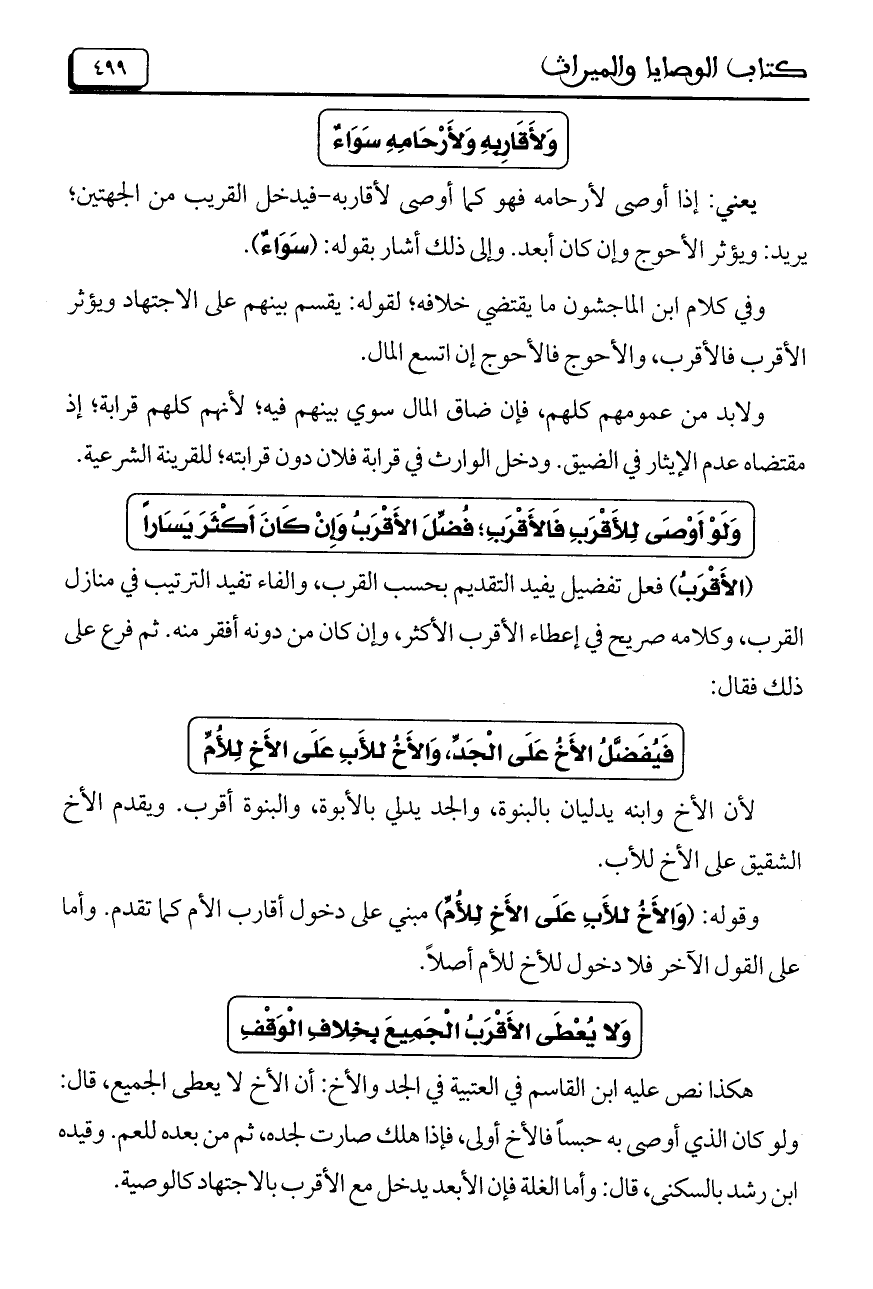 كتاب الوصايا والميراث
٤٩٩
وَلأَقَارِبِهِ وَلأَرْحَامِهِ سَوَاءٌ
يعني: إذا أوصى لأرحامه فهو كما أوصى لأقاربه-فيدخل القريب من الجهتين؛
يريد: ويؤثر الأحوج وإن كان أبعد. وإلى ذلك أشار بقوله: (سَوَاءٌ).
وفي كلام ابن الماجشون ما يقتضي خلافه؛ لقوله: يقسم بينهم على الاجتهاد ويؤثر
الأقرب فالأقرب، والأحوج فالأحوج إن اتسع المال.
ولابد من عمومهم كلهم، فإن ضاق المال سوي بينهم فيه؛ لأنهم كلهم قرابة؛ إذ
مقتضاه عدم الإيثار في الضيق. ودخل الوارث في قرابة فلان دون قرابته؛ للقرينة الشرعية.
وَلَوْ أَوْصَى لِلأَقْرَبِ فَالأَقْرَبِ؛ فُضِّلَ الأَقْرَبُ وَإِنْ كَانَ أَكْثَرَ يَسَاراً
(الأَقْرَبُ) فعل تفضيل يفيد التقديم بحسب القرب، والفاء تفيد الترتيب في منازل
القرب، وكلامه صريح في إعطاء الأقرب الأكثر، وإن كان من دونه أفقر منه. ثم فرع على
ذلك فقال:
فَيُفَضَّلُ الأَخُ عَلَى الْجَدِّ، وَالأَخُ للأَبِ عَلَى الأَخِ لِلأُمِّ
لأن الأخ وابنه يدليان بالبنوة، والجد يدلي بالأبوة، والبنوة أقرب. ويقدم الأخ
الشقيق على الأخ للأب.
وقوله: (وَالأَخُ للأَبِ عَلَى الأَخِ لِلأُمِّ) مبني على دخول أقارب الأم كما تقدم. وأما
على القول الآخر فلا دخول للأخ للأم أصلاً.
وَلا يُعْطَى الأَقْرَبُ الْجَمِيعَ بِخِلافِ الْوَقْفِ
هكذا نص عليه ابن القاسم في العتبية في الجد والأخ: أن الأخ لا يعطى الجميع، قال:
ولو كان الذي أوصى به حبساً فالأخ أولى، فإذا هلك صارت لجده، ثم من بعده للعم. وقيده
ابن رشد بالسكنى، قال: وأما الغلة فإن الأبعد يدخل مع الأقرب بالاجتهاد كالوصية.